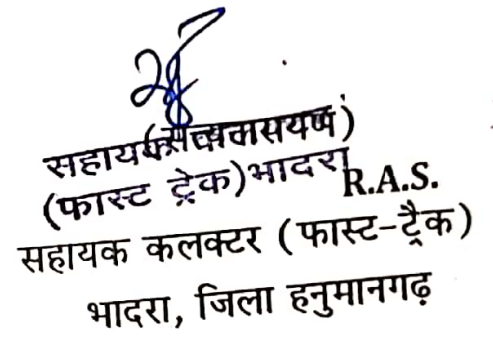 (सत्यनारायण)
सहायक
(फास्ट ट्रेक)भादरा
R.A.S.
सहायक कलक्टर (फास्ट-ट्रैक)
भादरा, जिला हनुमानगढ़